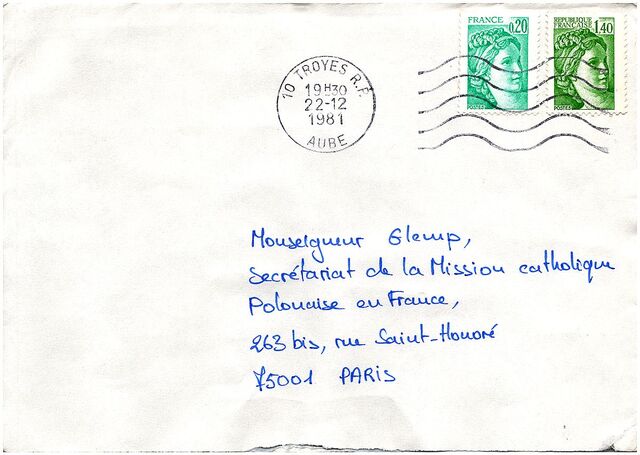 FRANCE
0,20
RÉPUBLIQUE
FRANÇAISE
1,40
10 TROYES R.P.
19H30
22-12
1981
AUBE
Monseigneur Glemp,
secrétariat de la Mission catholique
Polonaise en France,
263 bis, rue Saint-Honoré
75001 PARIS